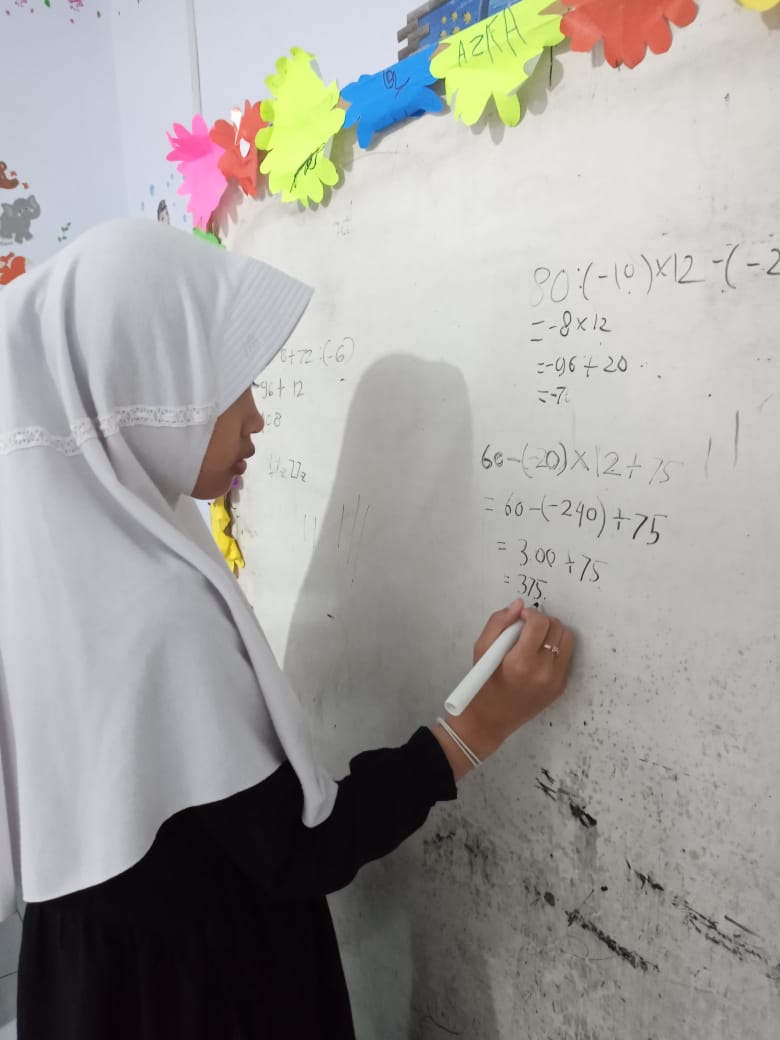 AZKA
80:(-10)×12-(-2
=-8×12
=-96+20
=-7
+72:(-6)
-96+12
08
60-(-20)×12+75
=60-(-240)+75
=300+75
=375